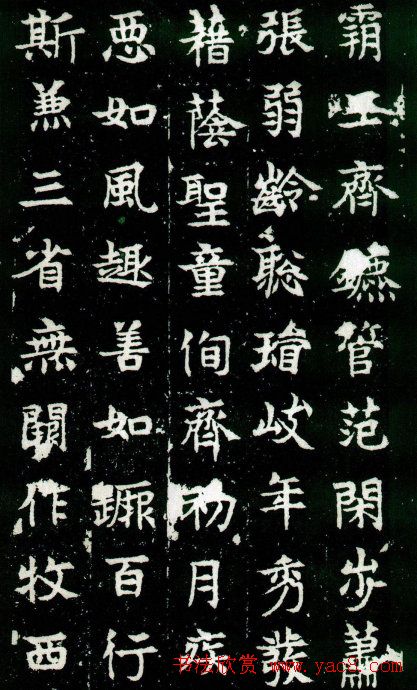 霸工齊鑣管范閑步蕭
張弱齡聡岐年秀發
藉蔭聖童侚齊初月疾
惡如風趣善如蹶百行
斯兼三省無闕作牧西
书法欣赏 www.yac8.com